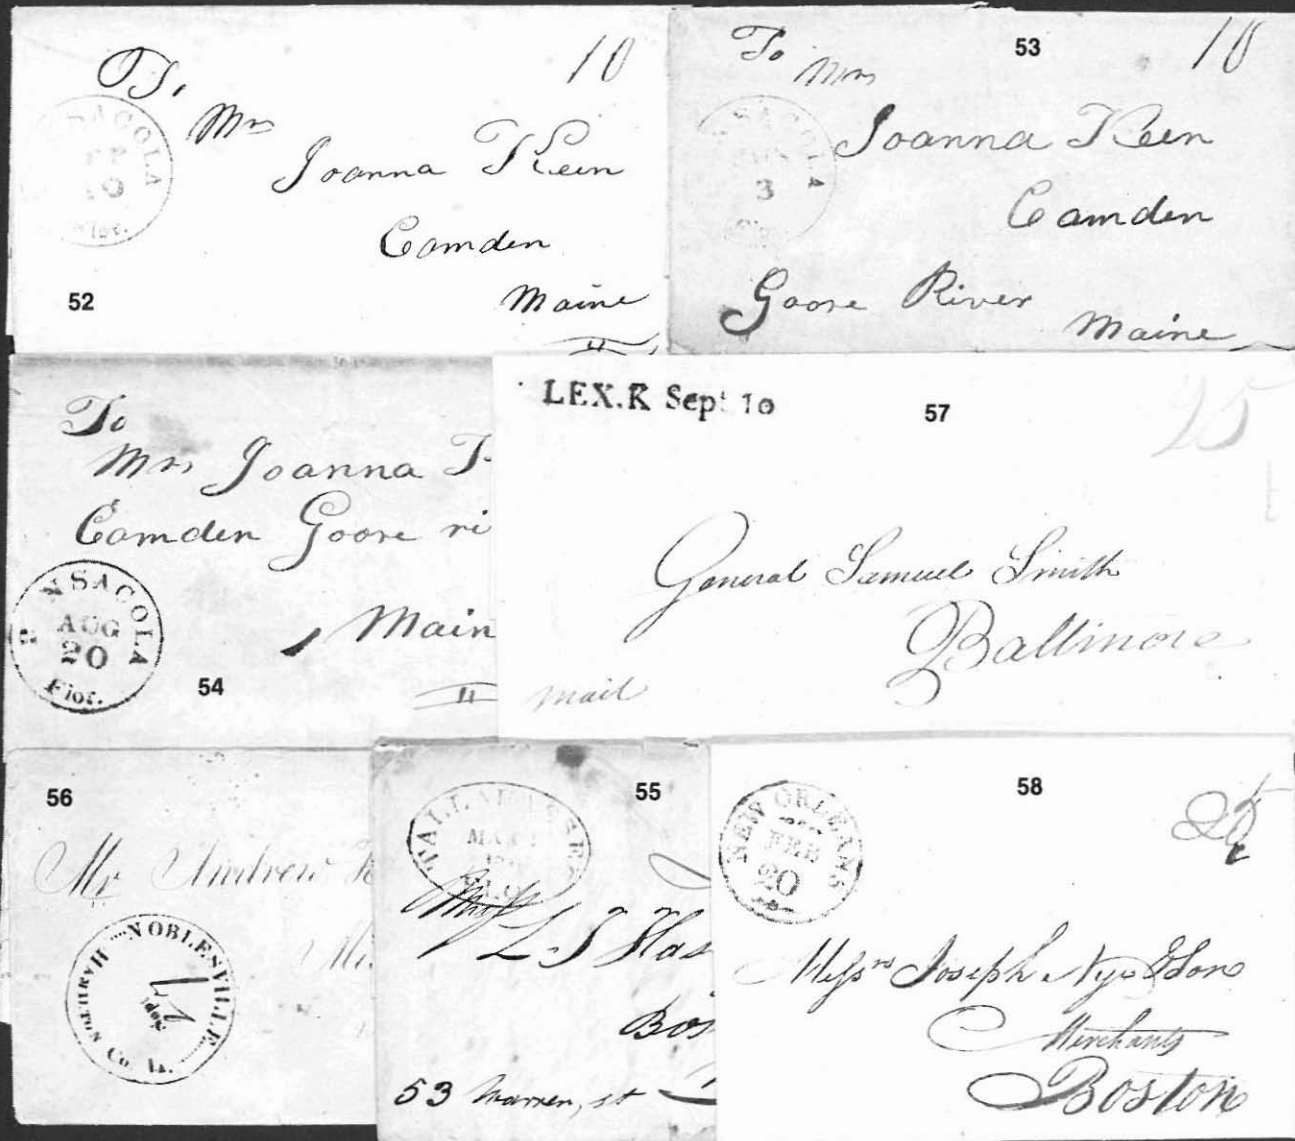 To
Mrs
Joanna Keen
Camden
Maine
10
SACOLA
10
Flor.
52
To
Mrs
Joanna Keen
Camden
Goose River
Maine
10
SACOLA
3
53
To
Mrs Joanna K
Camden Goose ri
Main
NSACOLA
AUG
20
Flor.
54
LEX.K Sept 10
57
25
General Samuel Smith
Baltimore
mail
56
Mr Andrew
NOBLESVILLE
Co
55
TALLAHASSEE
L. J Has
Bos
53 Warren, st
58
NEW ORLEANS
FEB
20
Messrs Joseph Nye & Son
Merchants
Boston